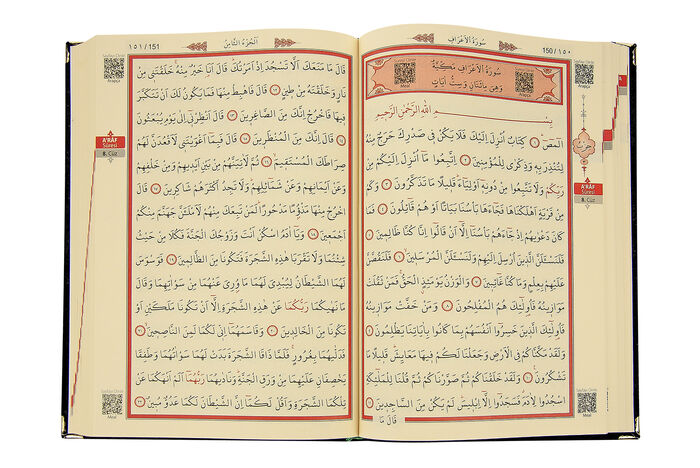 سُورَةُ الْاَعْرَافِ
150 / ١٥٠
Sayfayı Dinle
Arapça
سُورَةُ الْاَعْرَافِ مَكِّيَّةٌ
وَهِيَ مِائَتَانِ وَسِتُّ اٰيَاتٍ
Meal
Arapça
بِسْمِ اللّٰهِ الرَّحْمٰنِ الرَّحِيمِ
الٓمٓصٓ ﴿١﴾ كِتَابٌ اُنْزِلَ اِلَيْكَ فَلَا يَكُنْ فِى صَدْرِكَ حَرَجٌ مِنْهُ
لِتُنْذِرَ بِهِ وَذِكْرٰى لِلْمُؤْمِنِينَ ﴿٢﴾ اِتَّبِعُوا مَٓا اُنْزِلَ اِلَيْكُمْ مِنْ
رَبِّكُمْ وَلَا تَتَّبِعُوا مِنْ دُونِهِٓ اَوْلِيَٓاءَ قَلِيلًا مَا تَذَكَّرُونَ ﴿٣﴾ وَكَمْ
مِنْ قَرْيَةٍ اَهْلَكْنَاهَا فَجَٓاءَهَا بَأْسُنَا بَيَاتًا اَوْ هُمْ قَٓائِلُونَ ﴿٤﴾ فَمَا
كَانَ دَعْوٰيهُمْ اِذْ جَٓاءَهُمْ بَأْسُنَٓا اِلَّٓا اَنْ قَالُٓوا اِنَّا كُنَّا ظَالِمِينَ ﴿٥﴾
فَلَنَسْـَٔلَنَّ الَّذِينَ اُرْسِلَ اِلَيْهِمْ وَلَنَسْـَٔلَنَّ الْمُرْسَلِينَ ﴿٦﴾ فَلَنَقُصَّنَّ
عَلَيْهِمْ بِعِلْمٍ وَمَا كُنَّا غَٓائِبِينَ ﴿٧﴾ وَالْوَزْنُ يَوْمَئِذٍ الْحَقُّ فَمَنْ ثَقُلَتْ
مَوَازِينُهُ فَاُو۬لٰٓئِكَ هُمُ الْمُفْلِحُونَ ﴿٨﴾ وَمَنْ خَفَّتْ مَوَازِينُهُ
فَاُو۬لٰٓئِكَ الَّذِينَ خَسِرُٓوا اَنْفُسَهُمْ بِمَا كَانُوا بِاٰيَاتِنَا يَظْلِمُونَ ﴿٩﴾
وَلَقَدْ مَكَّنَّاكُمْ فِى الْاَرْضِ وَجَعَلْنَا لَكُمْ فِيهَا مَعَايِشَ قَلِيلًا مَا
تَشْكُرُونَ ﴿١٠﴾ وَلَقَدْ خَلَقْنَاكُمْ ثُمَّ صَوَّرْنَاكُمْ ثُمَّ قُلْنَا لِلْمَلٰٓئِكَةِ
اسْجُدُوا لِاٰدَمَ فَسَجَدُٓوا اِلَّٓا اِبْلِيسَ لَمْ يَكُنْ مِنَ السَّاجِدِينَ ﴿١١﴾
قَالَ مَا
حزب
A'RÂF
Sûresi
8. Cüz
Meal
١٥١ / 151
اَلْجُزْءُ الثَّامِنُ
Sayfayı Dinle
Arapça
قَالَ مَا مَنَعَكَ اَلَّا تَسْجُدَ اِذْ اَمَرْتُكَ قَالَ اَنَا خَيْرٌ مِنْهُ خَلَقْتَنِى مِنْ
نَارٍ وَخَلَقْتَهُ مِنْ طِينٍ ﴿١٢﴾ قَالَ فَاهْبِطْ مِنْهَا فَمَا يَكُونُ لَكَ اَنْ تَتَكَبَّرَ
فِيهَا فَاخْرُجْ اِنَّكَ مِنَ الصَّاغِرِينَ ﴿١٣﴾ قَالَ اَنْظِرْنِٓى اِلٰى يَوْمِ يُبْعَثُونَ
﴿١٤﴾ قَالَ اِنَّكَ مِنَ الْمُنْظَرِينَ ﴿١٥﴾ قَالَ فَبِمَٓا اَغْوَيْتَنِى لَاَقْعُدَنَّ لَهُمْ
صِرَاطَكَ الْمُسْتَقِيمَ ﴿١٦﴾ ثُمَّ لَاٰتِيَنَّهُمْ مِنْ بَيْنِ اَيْدِيهِمْ وَمِنْ خَلْفِهِمْ
وَعَنْ اَيْمَانِهِمْ وَعَنْ شَمَٓائِلِهِمْ وَلَا تَجِدُ اَكْثَرَهُمْ شَاكِرِينَ ﴿١٧﴾ قَالَ
اخْرُجْ مِنْهَا مَذْؤُ۫مًا مَدْحُورًا لَمَنْ تَبِعَكَ مِنْهُمْ لَاَمْلَـَٔنَّ جَهَنَّمَ مِنْكُمْ
اَجْمَعِينَ ﴿١٨﴾ وَيَٓا اٰدَمُ اسْكُنْ اَنْتَ وَزَوْجُكَ الْجَنَّةَ فَكُلَا مِنْ حَيْثُ
شِئْتُمَا وَلَا تَقْرَبَا هٰذِهِ الشَّجَرَةَ فَتَكُونَا مِنَ الظَّالِمِينَ ﴿١٩﴾ فَوَسْوَسَ
لَهُمَا الشَّيْطَانُ لِيُبْدِىَ لَهُمَا مَا وُ۫رِىَ عَنْهُمَا مِنْ سَوْاٰتِهِمَا وَقَالَ
مَا نَهٰيكُمَا رَبُّكُمَا عَنْ هٰذِهِ الشَّجَرَةِ اِلَّٓا اَنْ تَكُونَا مَلَكَيْنِ اَوْ
تَكُونَا مِنَ الْخَالِدِينَ ﴿٢٠﴾ وَقَاسَمَهُمَٓا اِنِّى لَكُمَا لَمِنَ النَّاصِحِينَ ﴿٢١﴾
فَدَلّٰيهُمَا بِغُرُورٍ فَلَمَّا ذَاقَا الشَّجَرَةَ بَدَتْ لَهُمَا سَوْاٰتُهُمَا وَطَفِقَا
يَخْصِفَانِ عَلَيْهِمَا مِنْ وَرَقِ الْجَنَّةِ وَنَادٰيهُمَا رَبُّهُمَٓا اَلَمْ اَنْهَكُمَا عَنْ
تِلْكُمَا الشَّجَرَةِ وَاَقُلْ لَكُمَٓا اِنَّ الشَّيْطَانَ لَكُمَا عَدُوٌّ مُبِينٌ ﴿٢٢﴾
A'RÂF
Sûresi
8. Cüz
Meal